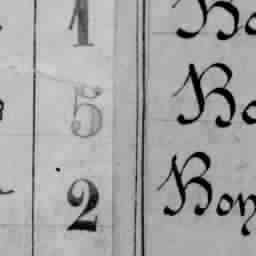 1 Bo
5 Bo
2 Bon